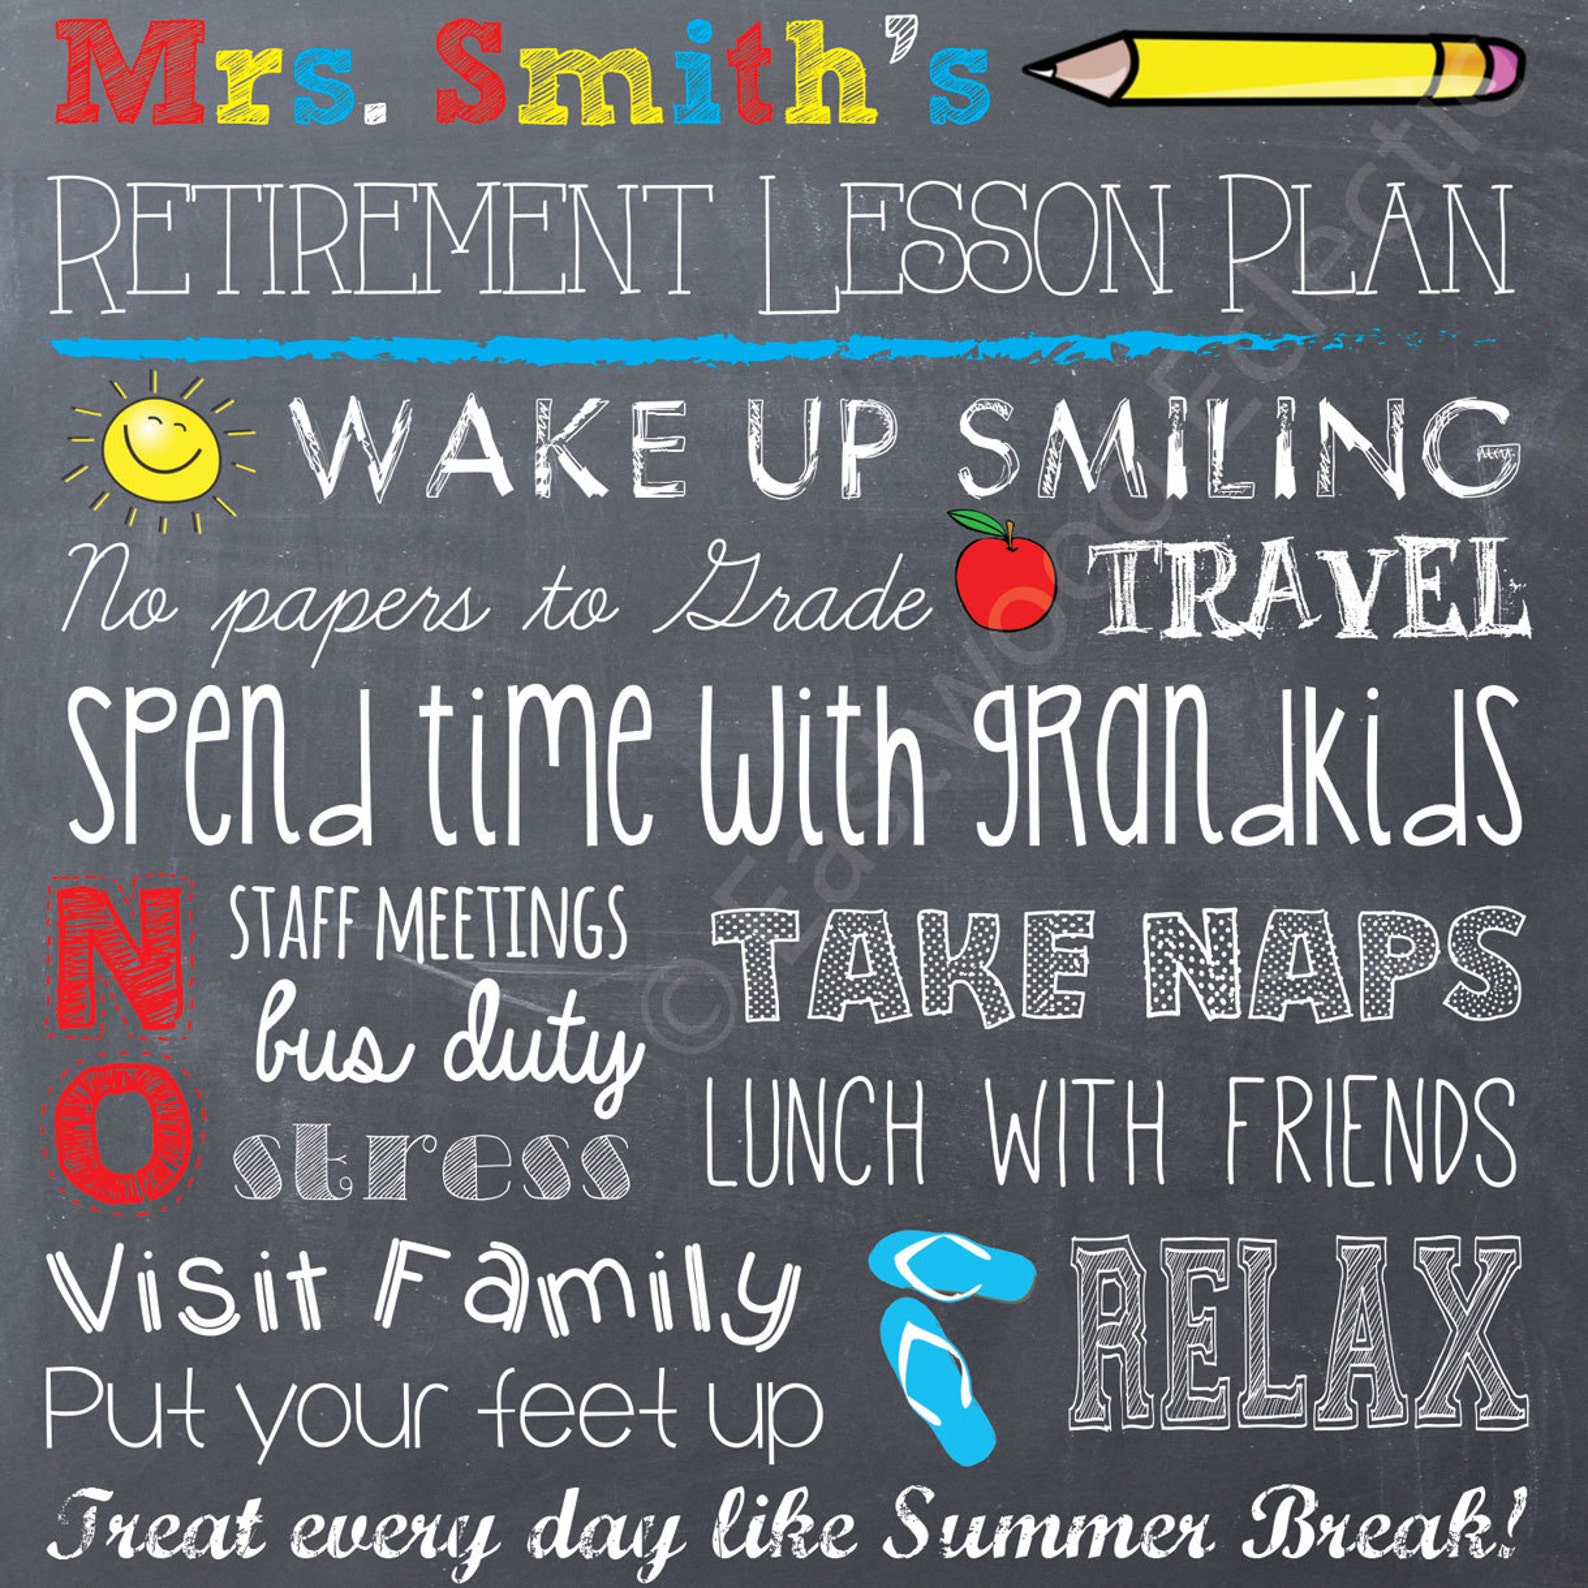 Mrs. Smith's
RETIREMENT LESSON PLAN
WAKE UP SMILING
No papers to Grade
TRAVEL
Spend time with grandkids
NO
STAFF MEETINGS
bus duty
stress
TAKE NAPS
LUNCH WITH FRIENDS
Visit Family
Put your feet up
RELAX
Treat every day like Summer Break!
© Eastwood Eclectic